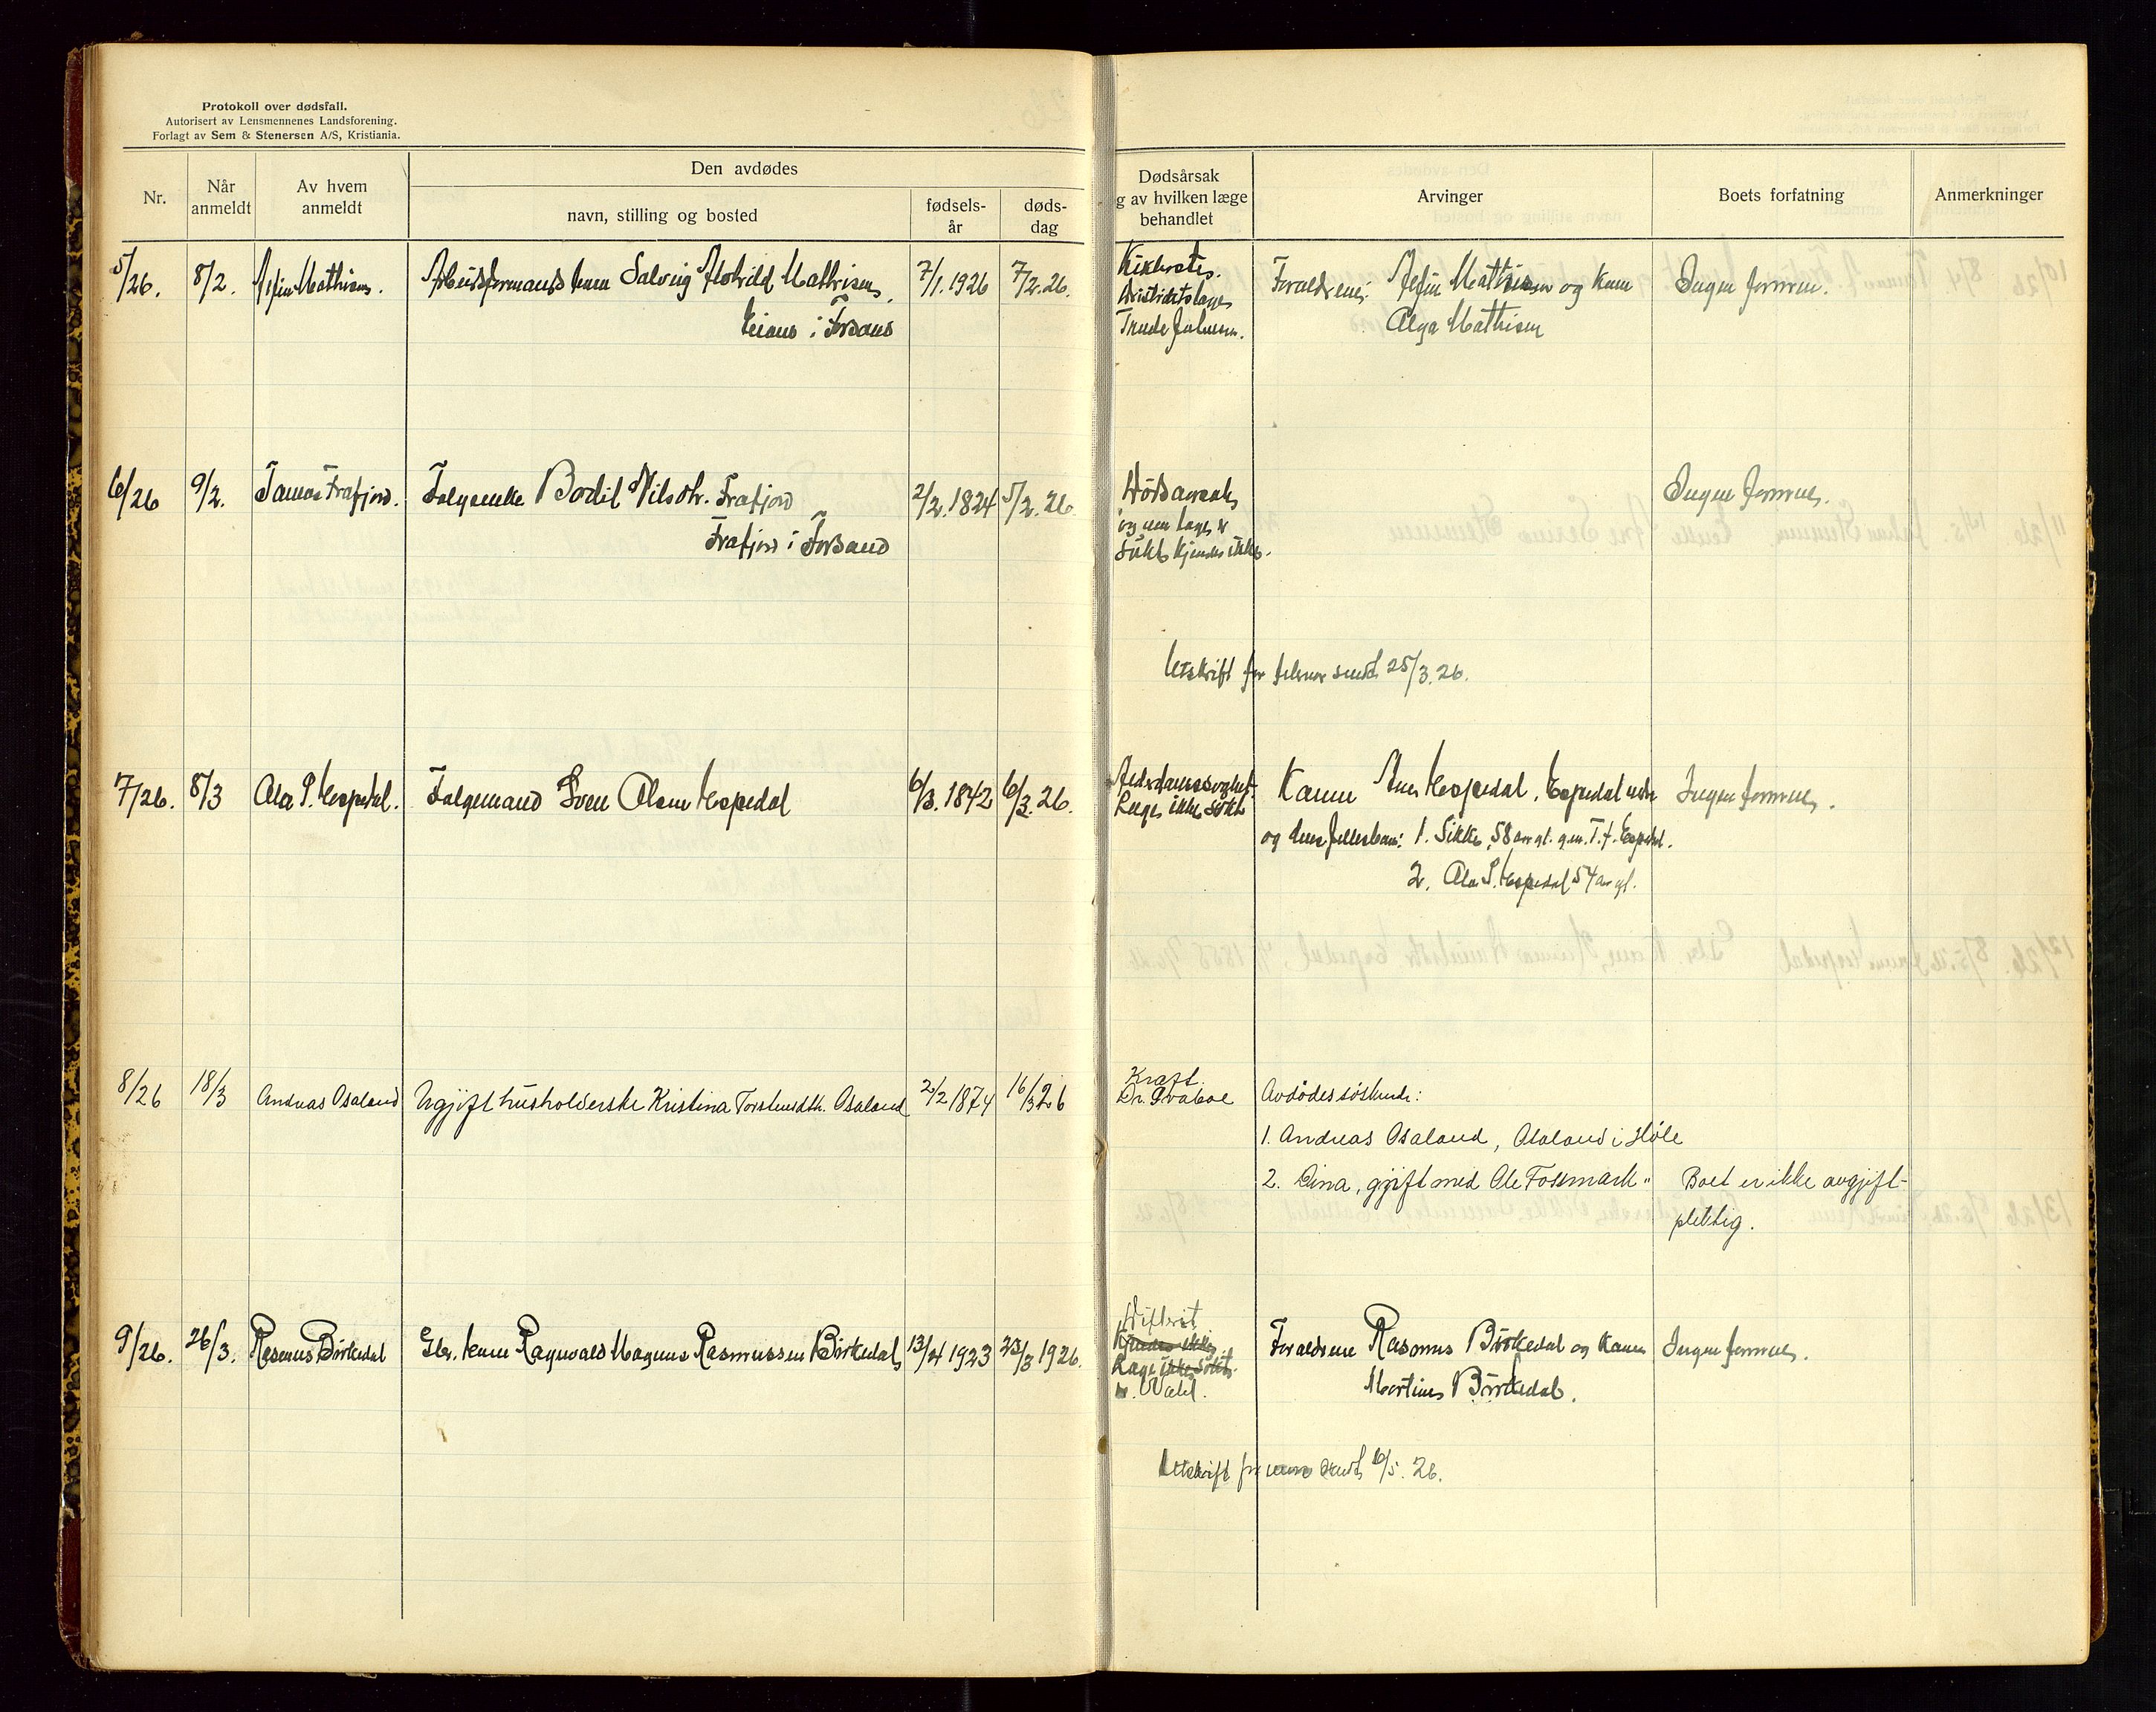 Protokoll over dødsfall.
Autorisert av Lensmennenes Landsforening.
Forlagt av Sem & Stenersen A/S, Kristiania.
Nr.
Når anmeldt
Av hvem anmeldt
Den avdødes
navn, stilling og bosted
fødsels-år
døds-dag
Dødsårsak
g av hvilken læge
behandlet
Arvinger
Boets forfatning
Anmerkninger
5/26. 8/2. Mathisen. Solveig Mathisen 7/1.1926 7/2.26.
i Forsand
Kikhoste.
Distriktslæge
Foraldrene: Mathisen og kone
Olga Mathisen
Ingen formue.
6/26 9/2. Tomas Frafjord. Folgeenke Bodil Nilsdtr. Frafjord 2/2.1824 5/2.26
Frafjord i Forsand
Dödsaarsak
og om læge er
sökt kjendes ikke.
Ingen formue.
Utskrift for februar sendt 25/3.26.
7/26. 8/3 Ola S. Espedal. Folgemand Sven Olsen Espedal 6/3.1842 6/3.26.
Alderdomssvaghet.
Læge ikke sökt
Kone Espedal, Espedal
og deres fellesbarn: 1. Sikke, 58 aar gl. g.m. T. T. Espedal.
2. Ola S. Espedal 54 aar gl.
Ingen formue.
8/26 18/3 Andreas Osaland Ugjift husholderske Kristina Torstensdtr. Osaland 2/2 1874 16/3 26
Kræft.
Dr. Svaboe
Avdödes söskende:
1. Andreas Osaland, Osaland i Høle
2. Dina, gjift med Ole Fossmark "
Boet er ikke avgjift-
pliktig.
9/26. 26/3. Rasmus Birkedal Gbr. Ragnvald Magnus Rasmussen Birkedal 13/4 1923 23/3 1926.
Difterit
Kjendes ikke
Læge ikke sökt.
Foraldrene Rasmus Birkedal og kone
Martine Birkedal.
Ingen formue.
Utskrift for mars sendt 6/5. 26.